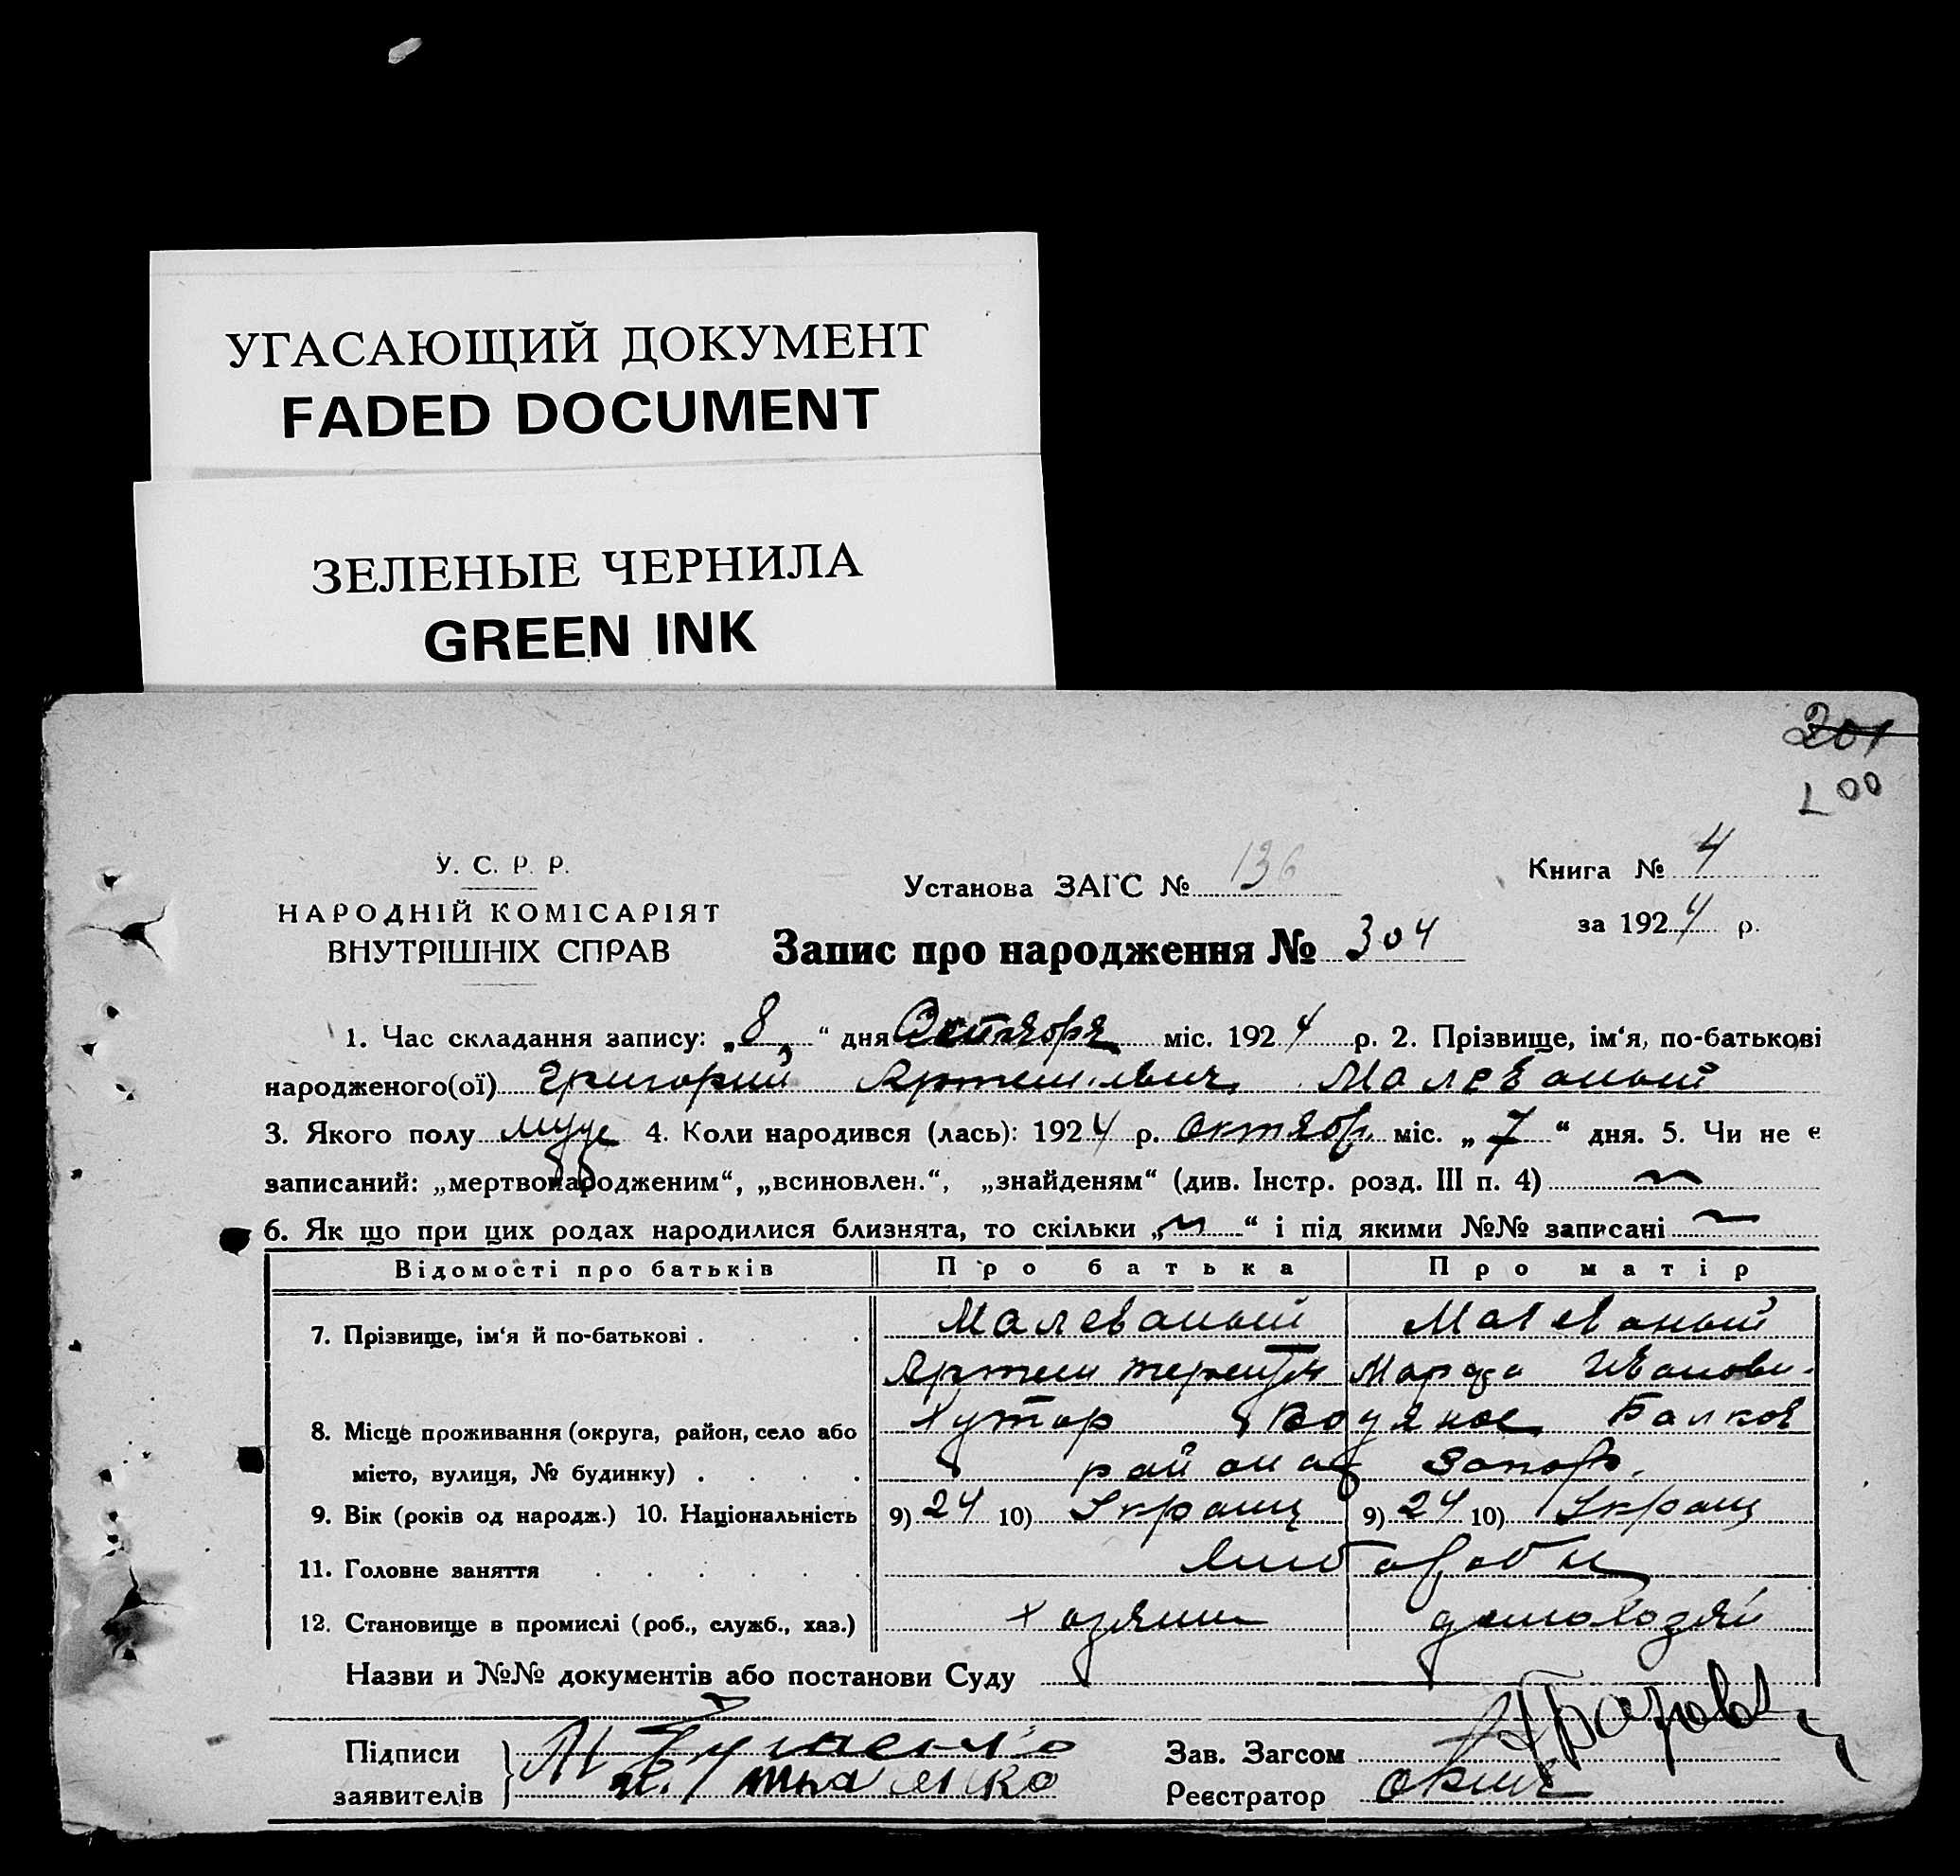 УГАСАЮЩИЙ ДОКУМЕНТ
FADED DOCUMENT
ЗЕЛЕНЫЕ ЧЕРНИЛА
GREEN INK
201
200
У. С. Р. Р.
НАРОДНІЙ КОМІСАРІЯТ
ВНУТРІШНІХ СПРАВ
Установа ЗАГС № 136
Книга № 4
за 1924 р.
Запис про народження № 304
1. Час складання запису: „8“ дня Октября міс. 1924 р. 2. Прізвище, ім‘я, по-батькові
народженого(ої) Григорий Малеваный
3. Якого полу муж 4. Коли народився (лась): 1924 р. октябр. міс. „7“ дня. 5. Чи не є
записаний: „мертвонародженим“, „всиновлен.“, „знайденям“ (див. Інстр. розд. III п. 4)
6. Як що при цих родах народилися близнята, то скільки „ “ і під якими №№ записані
Відомості про батьків Про батька Про матір
7. Прізвище, ім‘я й по-батькові . . . . Малеваный Малеваный
Артем Иванови-
8. Місце проживання (округа, район, село або Хутор Водяное Балков
місто, вулиця, № будинку) . . . . района Запор.
9. Вік (років од народж.) 10. Національність 9) 24 10) Украин 9) 24 10) Украин
11. Головне заняття . . . . . .
12. Становище в промислі (роб., служб., хаз.) хозяин домохозяй
Назви и №№ документів або постанови Суду
Підписи
заявителів
Зав. Загсом
Реєстратор